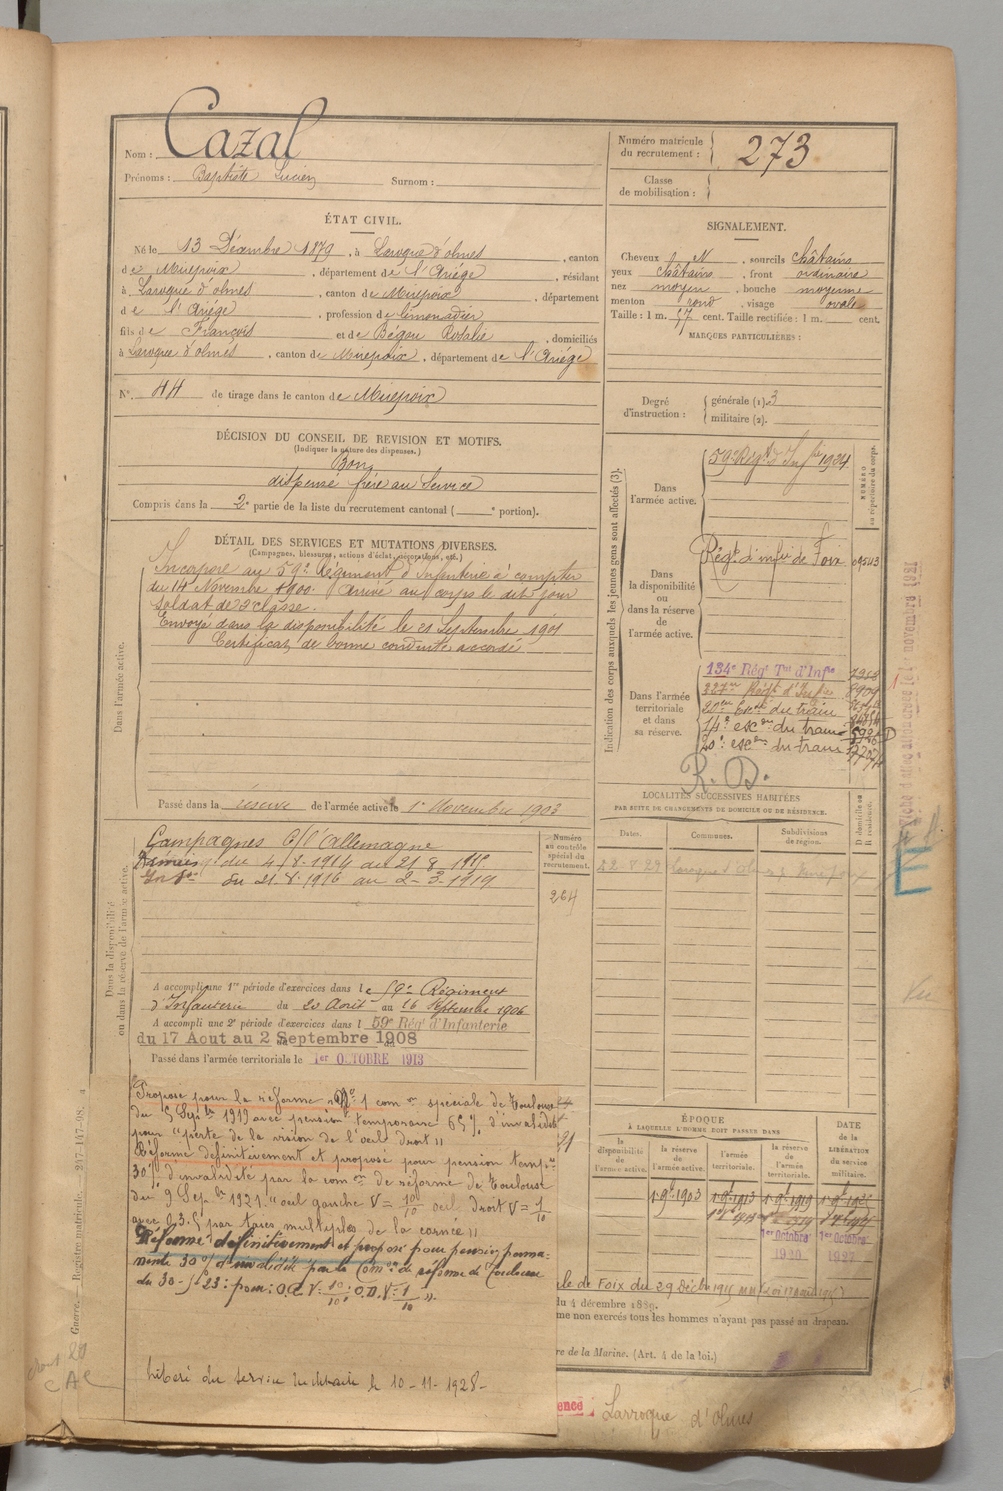 Nom : Cazal
Prénoms : Baptiste Lucien Surnom :
Numéro matricule du recrutement : 273
Classe de mobilisation :
ÉTAT CIVIL.
Né le 13 Décembre 1879, à Laroque d'olmes, canton
de Mirepoix, département de l'Ariége, résidant
à Laroque d'olmes, canton de Mirepoix, département
de l'Ariége, profession de limonadier
fils de François et de Bégou Rosalie, domiciliés
à Laroque d'olmes, canton de Mirepoix, département de l'Ariége
N° 44 de tirage dans le canton de Mirepoix
SIGNALEMENT.
Cheveux N, sourcils châtains
yeux châtains, front ordinaire
nez moyen, bouche moyenne
menton rond, visage ovale
Taille : 1 m. 57 cent. Taille rectifiée : 1 m. cent.
MARQUES PARTICULIÈRES :
Degré d'instruction : générale (1). 3
militaire (2).
DÉCISION DU CONSEIL DE REVISION ET MOTIFS.
(Indiquer la nature des dispenses.)
Bon
dispensé frère au Service
Compris dans la 2e partie de la liste du recrutement cantonal ( e portion).
DÉTAIL DES SERVICES ET MUTATIONS DIVERSES.
(Campagnes, blessures, actions d'éclat, décorations, etc.)
Dans l'armée active.
Incorporé au 59e Régiment d'Infanterie à compter
du 14 Novembre 1900. Arrivé au corps le dit jour
soldat de 2e classe.
Envoyé dans la disponibilité le 21 Septembre 1901
Certificat de bonne conduite accordé
Passé dans la réserve de l'armée active le 1er Novembre 1903
Indication des corps auxquels les jeunes gens sont affectés (3).
NUMÉRO au répertoire du corps.
Dans l'armée active.
59e Régt d'Infrie 1924
Dans la disponibilité ou dans la réserve de l'armée active.
Régt d'infie de Foix 09543
Dans l'armée territoriale et dans sa réserve.
134e Régt Tal d'Infie
Régt d'Infie
20e Eson du train
14e escon du train
20e escon du train
R. D.
LOCALITÉS SUCCESSIVES HABITÉES
PAR SUITE DE CHANGEMENTS DE DOMICILE OU DE RÉSIDENCE.
Dates. Communes. Subdivisions de région. D domicile ou R résidence.
Dans la disponibilité ou dans la réserve de l'armée active.
Numéro au contrôle spécial du recrutement.
264
Campagnes C/ l'allemagne
du 4-8-1914 au 21-8-1916
du 21-8-1916 au 2-3-1919
A accompli une 1re période d'exercices dans le 59e Régiment
d'Infanterie du 20 Août au 16 Septembre 1906
A accompli une 2e période d'exercices dans l 59e Régt d'Infanterie
du 17 Aout au 2 Septembre 1908
Passé dans l'armée territoriale le 1er OCTOBRE 1913
Proposé pour la réforme n° 1 com on spéciale de Toulouse
du 5 Sepbre 1919 avec pension temporaire 65% d'invalidité
pour "perte de la vision de l'oeil droit"
Réformé définitivement et proposé pour pension tempre
30% d'invalidité par la com on de réforme de Toulouse
du 9 Sepbre 1921. "oeil gauche V = 10/10 oeil droit V = 1/10
par taies multiples de la cornée"
Réformé définitivement et proposé pour pension perma-
nente 30% d'invalidité par la Comon de réforme de Toulouse
du 30-5-23 : pour : O.G. V : 10/10 : O.D. V : 1/10 ".
libéré du service militaire le 10-11-1928-
ÉPOQUE
À LAQUELLE L'HOMME DOIT PASSER DANS
la disponibilité de l'armée active.
la réserve de l'armée active.
l'armée territoriale.
la réserve de l'armée territoriale.
DATE de la LIBÉRATION du service militaire.
1er Octobre 1920
1er Octobre 1927
du 4 décembre 1889.
me non exercés tous les hommes n'ayant pas passé au drapeau.
re de la Marine. (Art. 4 de la loi.)
ence : Larroque d'olmes
Guerre. — Registre matricule. 217-147-98.